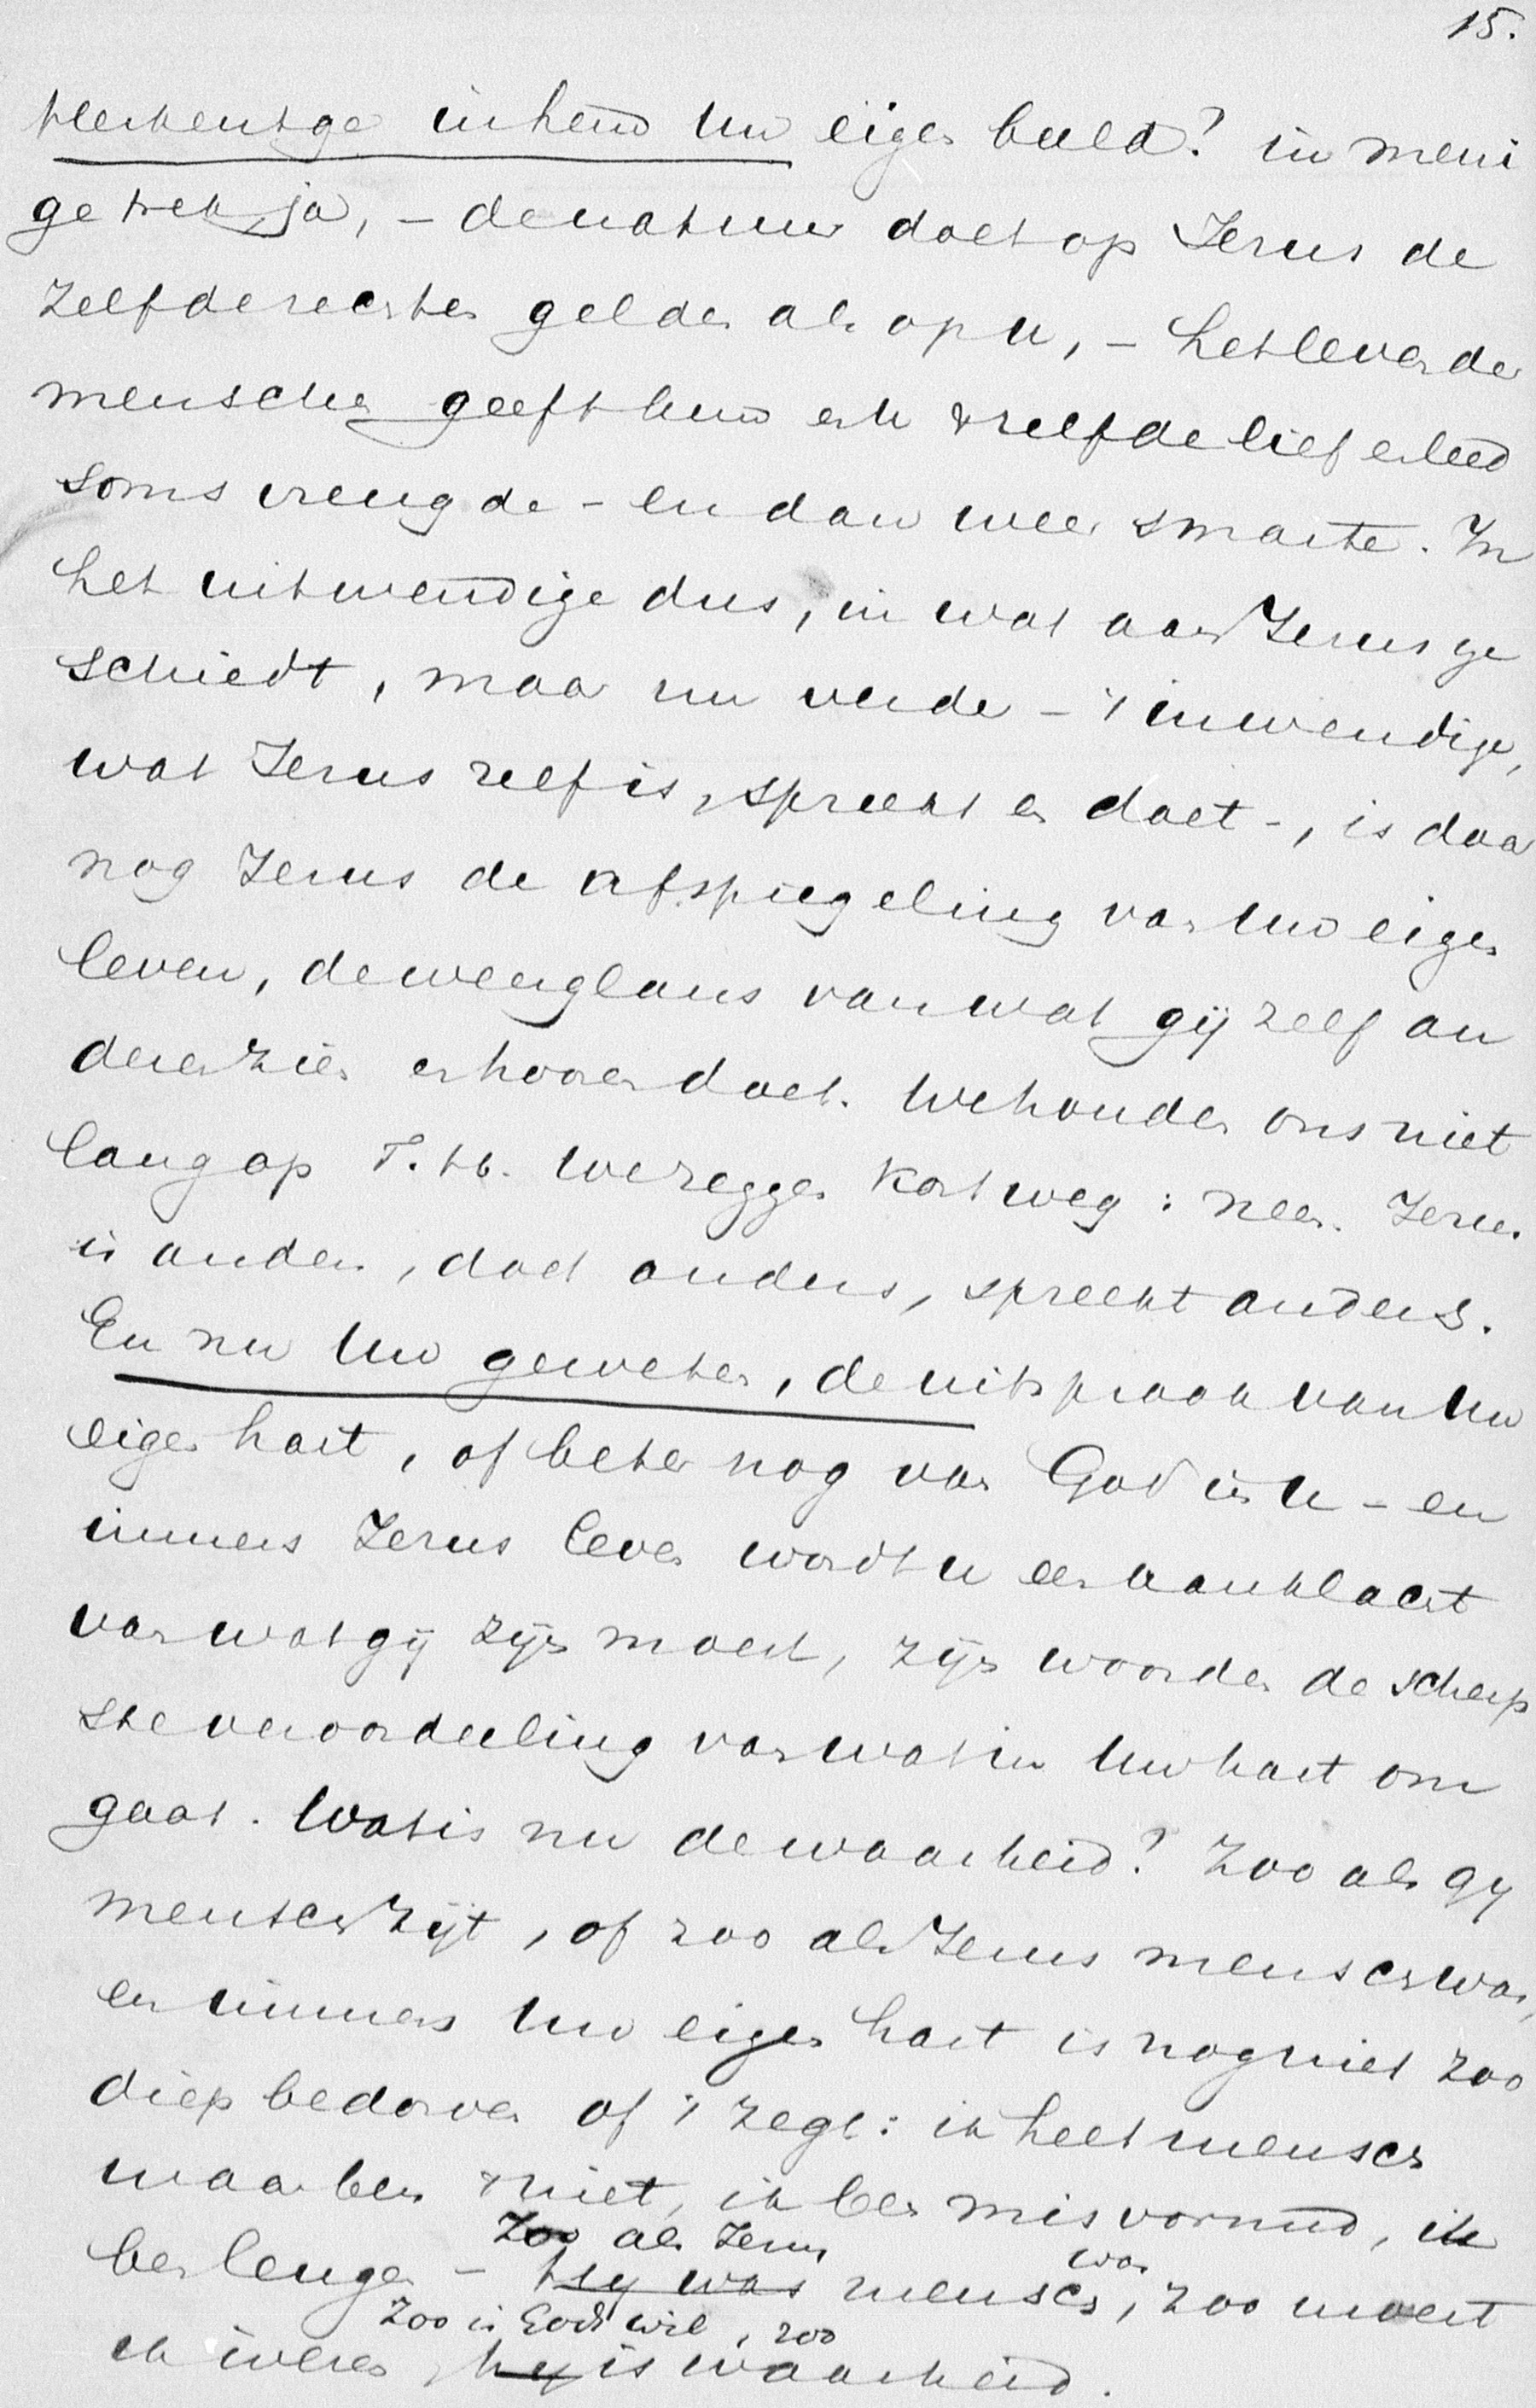 15.
Herkent ge in hem Uw eigen beeld? in meni
ge trek ja, - de natuur doet op Jezus de
zelfde rechten gelden als op u, - het leven der
menschen geeft hem en U 't zelfde lief en leed
soms vreugde - en dan weer smarte. In
het uitwendige dus, in wat aan Jezus ge
schiedt, maar nu verder - 't inwendige,
wat Jezus zelf is, spreekt en doet -, is daar
nog Jezus de afspiegeling van Uw eigen
leven, de weerglans van wat gij zelf an
deren zien en hooren doet. We houden ons niet
lang op T. H. We zeggen kortweg: neen. Jezus
is anders, doet anders, spreekt anders.
En nu Uw geweten, de uitspraak van Uw
eigen hart, of beter nog van God in U - en
immers Jezus leven wordt u een aanklacht
van wat gij zijn moest, zijn woorden de scherp
ste veroordeeling van wat in Uw hart om
gaat. Wat is nu de waarheid? Zoo als gy
mensch zijt, of zoo als Jezus mensch was,
en immers Uw eigen hart is nog niet zoo
diep bedorven of 't zegt: ik heet mensch
maar ben 't niet, ik ben misvormd, ik
ben leugen - Hy was Zoo als Jezus mensch was, zoo moest
ik wezen, hy Zoo is Gods wil, zoo is waarheid.